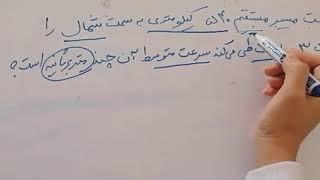 مسیر مستقیم ۵۴۰ کیلومتری به سمت شمال را
طی می‌کند سرعت متوسط آن چند متربرثانیه است؟